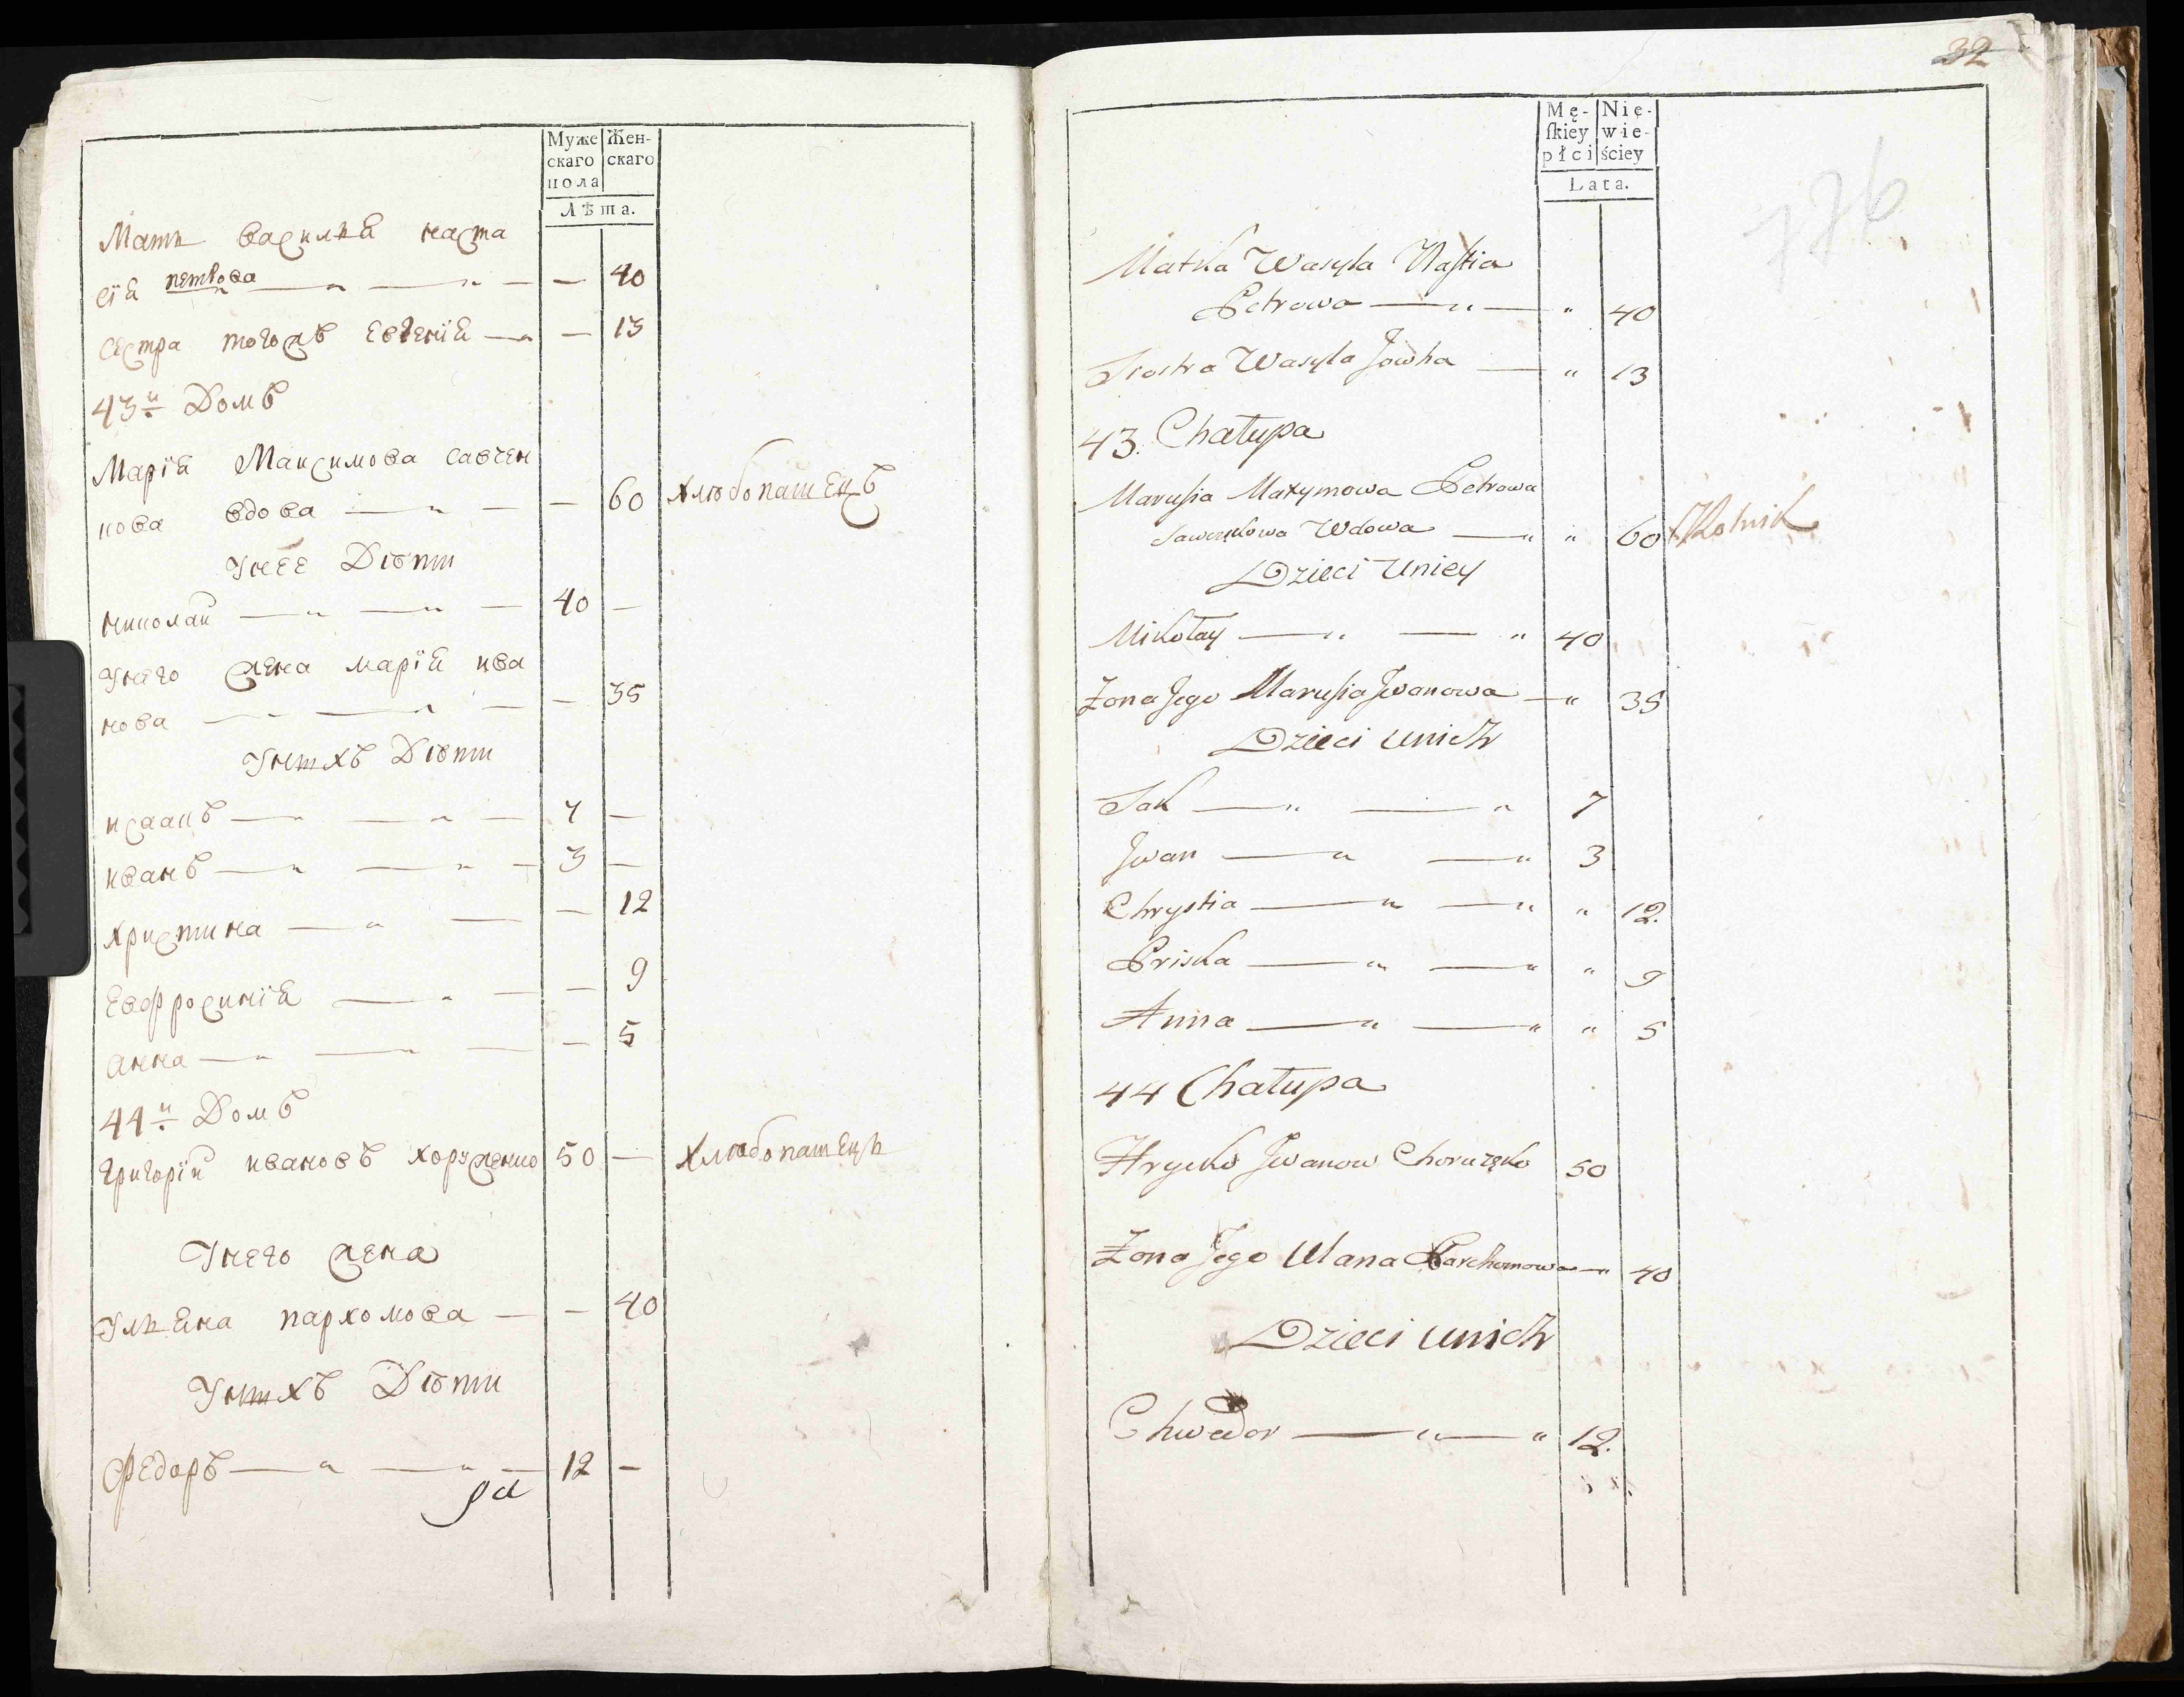 Муже
скаго
пола
Жен-
скаго
Лѣта.
Мать василия наста
сїя петрова — — — 40
сестра тогожъ Евгенія — — 13
43й Домъ
Марія Максимова савчен
кова вдова — — 60 хлѣбопашецъ
Унее Дѣти
николай — — 40 —
Унего жена марїя ива
нова — — — 35
Унихъ Дѣти
исаакъ — — 7 —
иванъ — — 3 —
христина — — 12
Евфросинїя — — 9
анна — — 5
44й Домъ
григорїй ивановъ хоруженко 50 — хлѣбопашець
Унего жена
Ульяна пархомова — — 40
Унихъ Дѣти
Федоръ — — 12 —
32
Mę-
skiey
płci
Nie-
wie-
ściey
Lata.
Matka Wasyla Nastia
Petrowa — " — " 40
Siostra Wasyla Jowha — " 13
43. Chałupa
Marusia Maxymowa Petrowa
Sawczękowa Wdowa — " " 60 Rolnik
Dzieci Uniey
Mikołay — " — " 40
Żona Jego Marusia Jwanowa — " 35
Dzieci unich
Sak — " — " 7
Jwan — " — " 3
Chrystia — " — " " 12.
Priska — " — " " 9
Anna — " — " " 5
44 Chałupa
Hrycko Jwanow Choruzęko 50
Żona Jego Ulana Parchomowa — " 40
Dzieci unich
Chwedor — " — " 12.